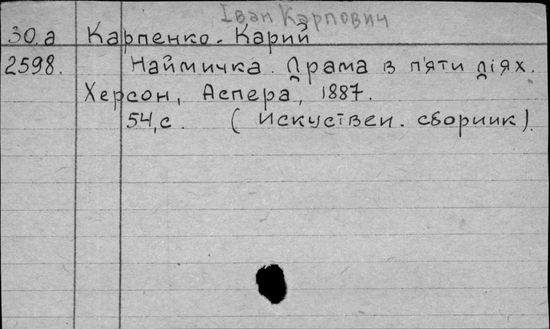 Іван Карпович
30.а Карпенко-Карий
2598. Наймичка. Драма в п'яти діях.
Херсон, Аспера, 1887.
54, с. (Искуствен. сборник).